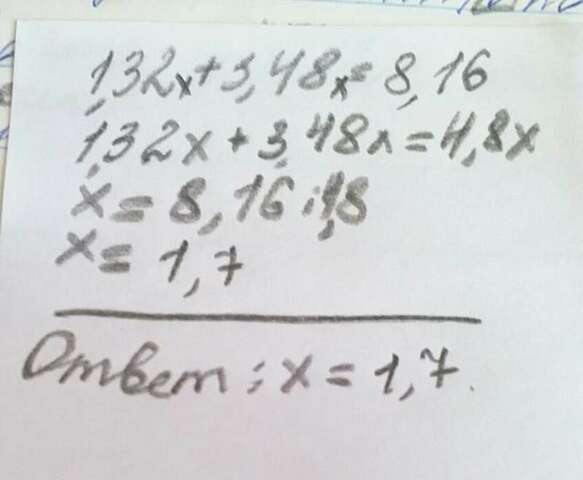 1,32x+3,48x=8,16
1,32x+3,48x=4,8x
x=8,16:4,8
x=1,7
Ответ: x=1,7.